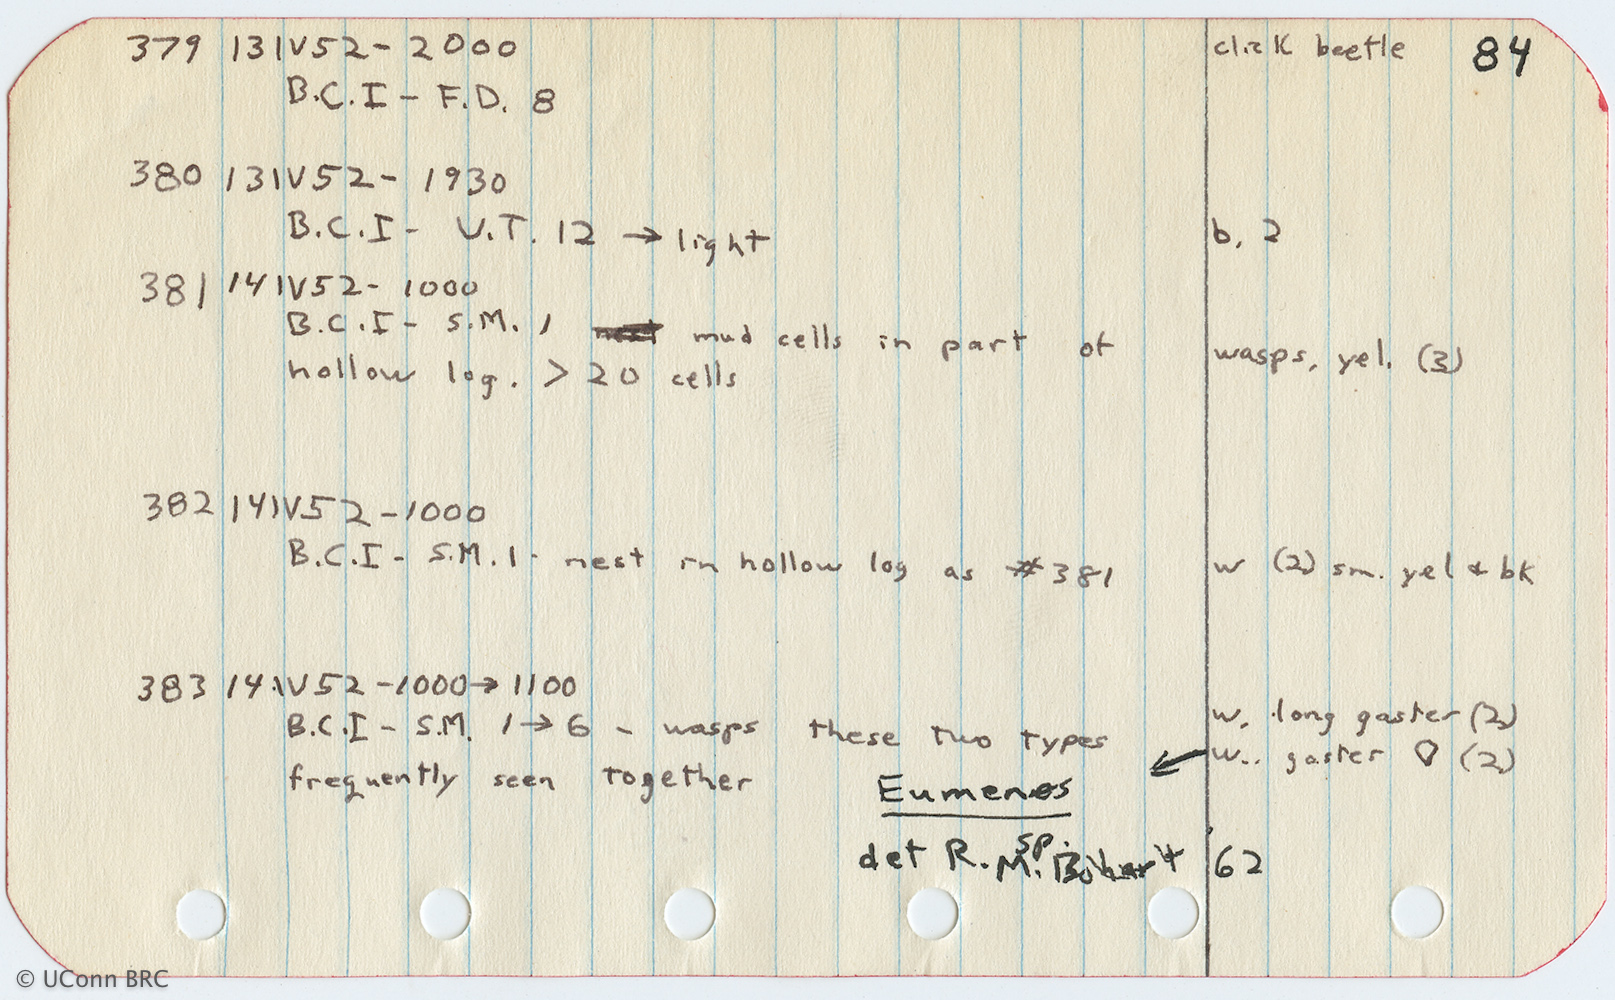 379 13IV52 - 2000 click beetle 84
B.C.I - F.D. 8
380 13IV52 - 1930
B.C.I - V.T. 12 → light b, 2
381 14IV52 - 1000
B.C.I - S.M. 1 mud cells in part of
hollow log. > 20 cells wasps, yel. (3)
382 14IV52 - 1000
B.C.I - S.M. 1 - nest in hollow log as #381 w (2) sm. yel & bk
383 14IV52 - 1000 → 1100
B.C.I - S.M. 1 → 6 - wasps these two types w, long gaster (2)
frequently seen together w.. gaster (2)
Eumenes
sp.
det R. M. Bohart '62
© UConn BRC